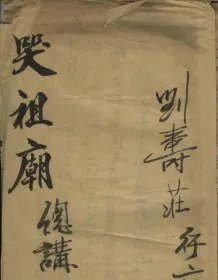 劉壽莊
哭祖廟
總講